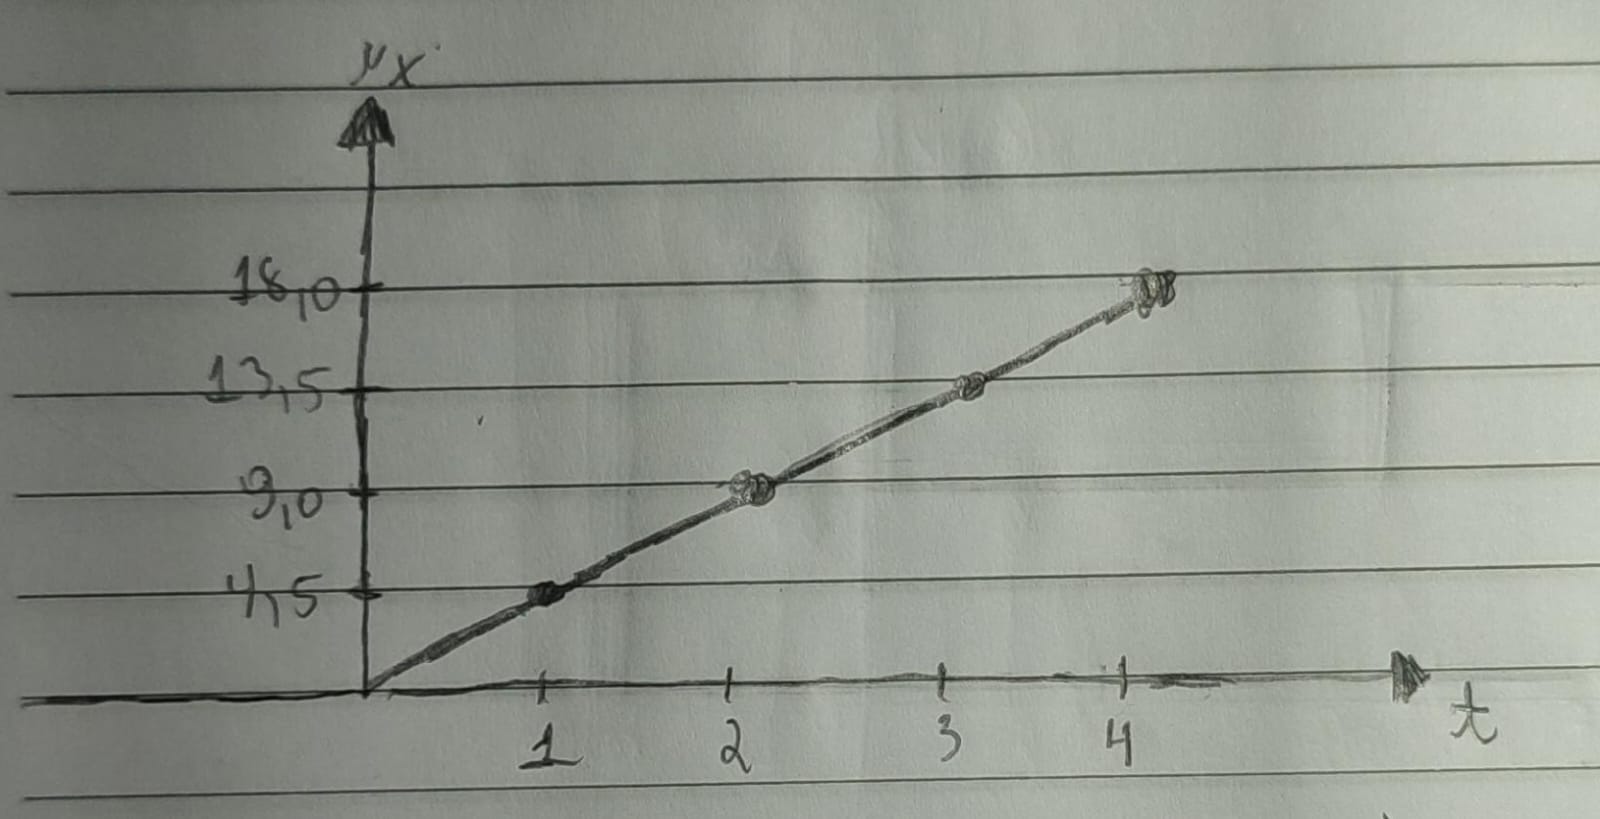 μx
18,0
13,5
9,0
4,5
1 2 3 4 t